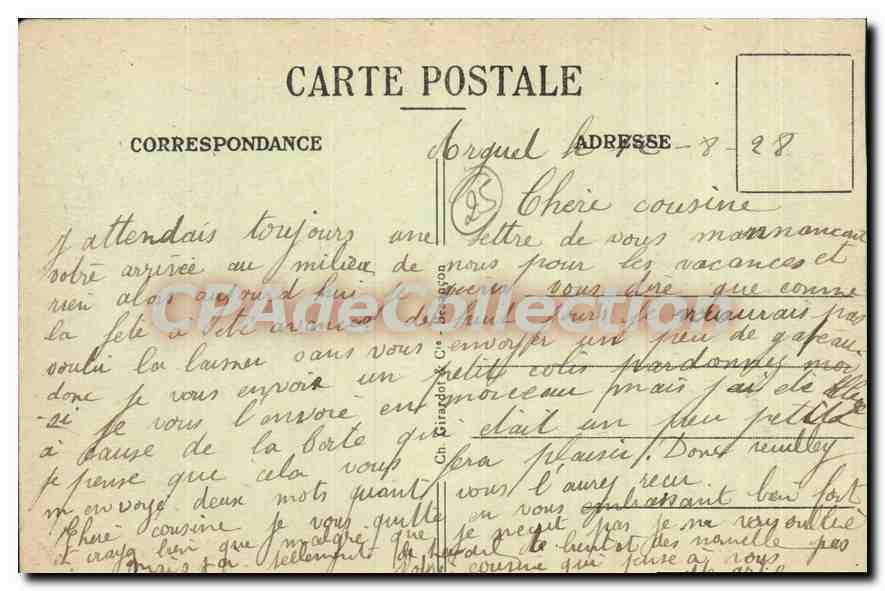 CARTE POSTALE
CORRESPONDANCE
ADRESSE
Arguel le 12 - 8 - 28
25
Chère cousine
j attendais toujours une lettre de vous mannoncant
votre arrivée au milieu de nous pour les vacances et
rien alors aujourd hui je viens vous dire que comme
la fete a été avancé de huit jours je naurais pas
voulu la laisser sans vous envoyer un peu de gateau
donc je vous envoie un petit colis pardonnez moi
si je vous l'envoie en morceau mais j'ai été
à cause de la boite qui était un peu petite
je pense que cela vous fera plaisir. Donc veuilley
m envoyé deux mots quant vous l'aurey recu
Chere cousine je vous quitte en vous embrassant bien fort
et craye bien que malgré que je necrit pas je ne vous oublie pas
tellement de travail bientot des nouvelle
cousine qui pense à vous
Ch. Girardot & Cie - Besançon
CPA De Collection